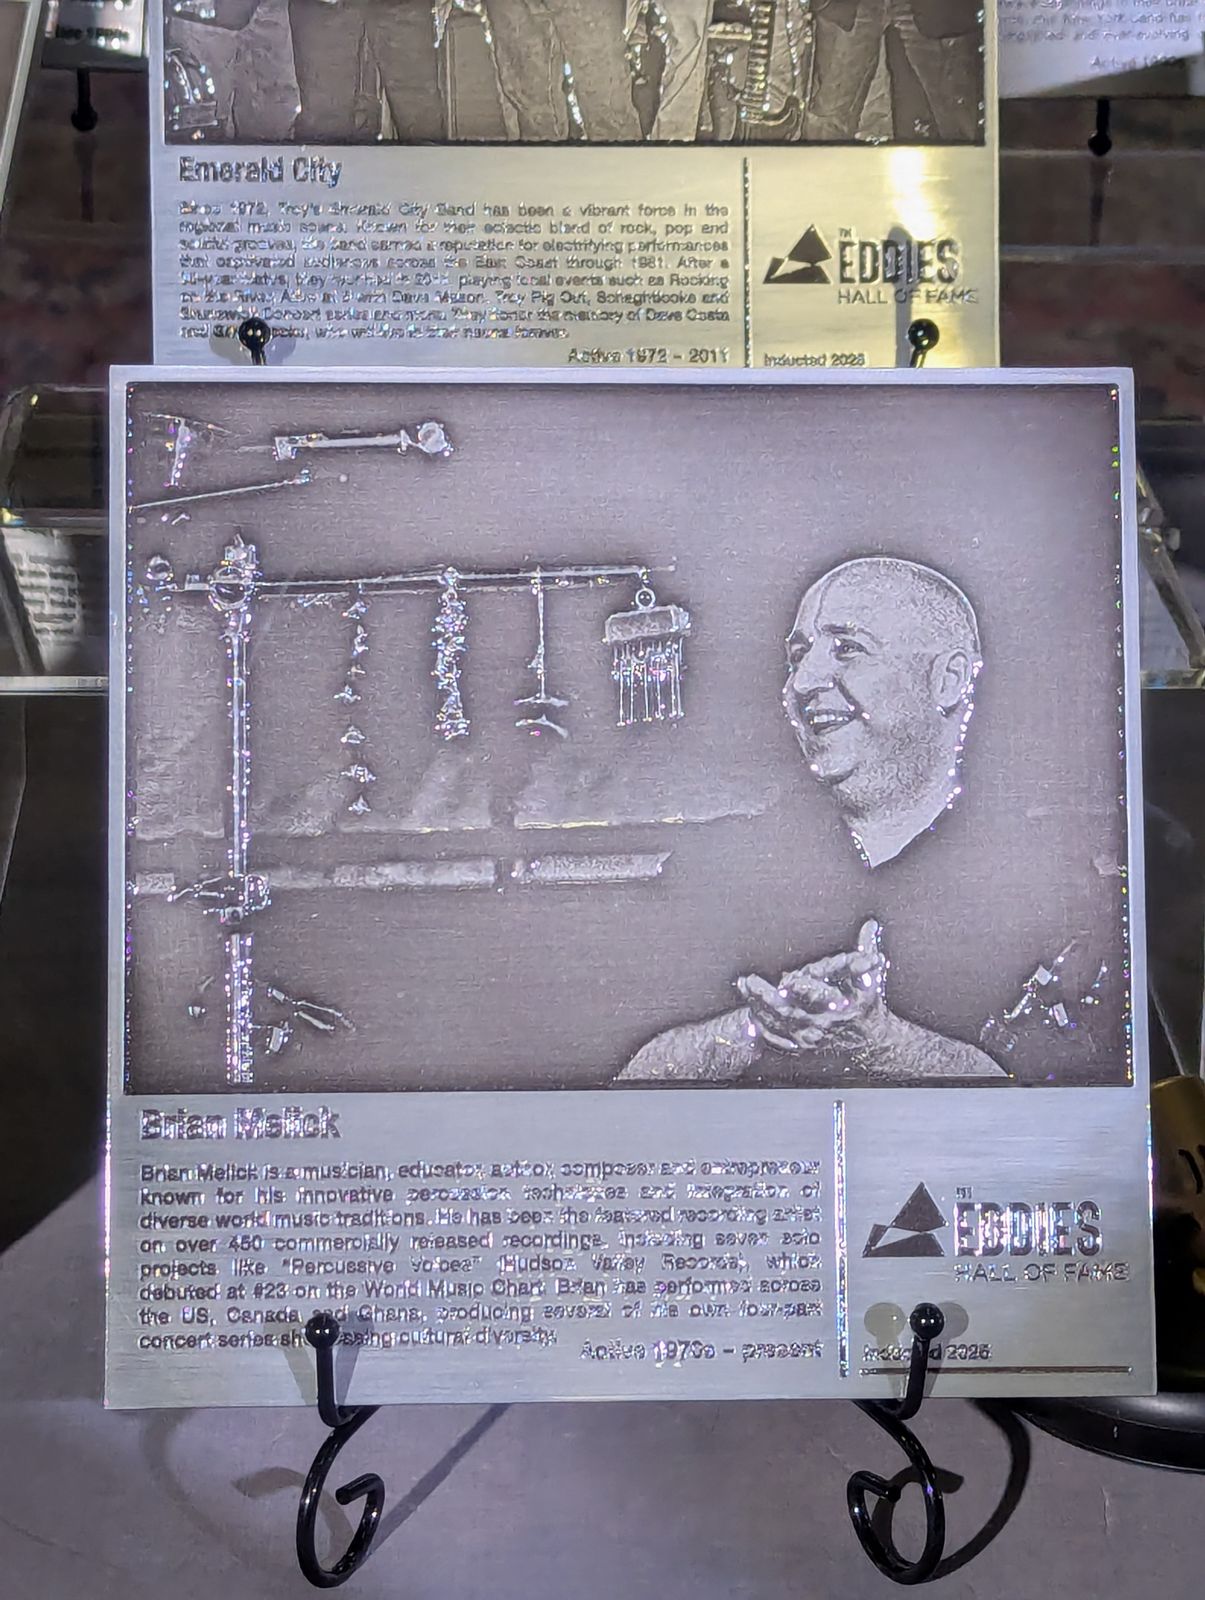 Emerald City
Since 1972, Troy's Emerald City Band has been a vibrant force in the
regional music scene. Known for their eclectic blend of rock, pop and
grooves, the band earned a reputation for electrifying performances
that captivated audiences across the East Coast through 1981. After a
they playing local events such as Rocking
on the River, Alive at Five with Dave Mason, Troy Pig Out, Schaghticoke and
Concert series and more. They honor the memory of Dave Costa
and who will
Active 1972 - 2011
THE
EDDIES
HALL OF FAME
Inducted 2026
Brian Melick
Brian Melick is a musician, educator, author, composer and entrepreneur
known for his innovative percussion techniques and integration of
diverse world music traditions. He has been the featured recording artist
on over 450 commercially released recordings, including seven solo
projects like "Percussive Voices" (Hudson Valley Records), which
debuted at #23 on the World Music Chart. Brian has performed across
the US, Canada and Ghana, producing several of his own four-part
concert series showcasing cultural diversity.
Active 1970s - present
THE
EDDIES
HALL OF FAME
Inducted 2026